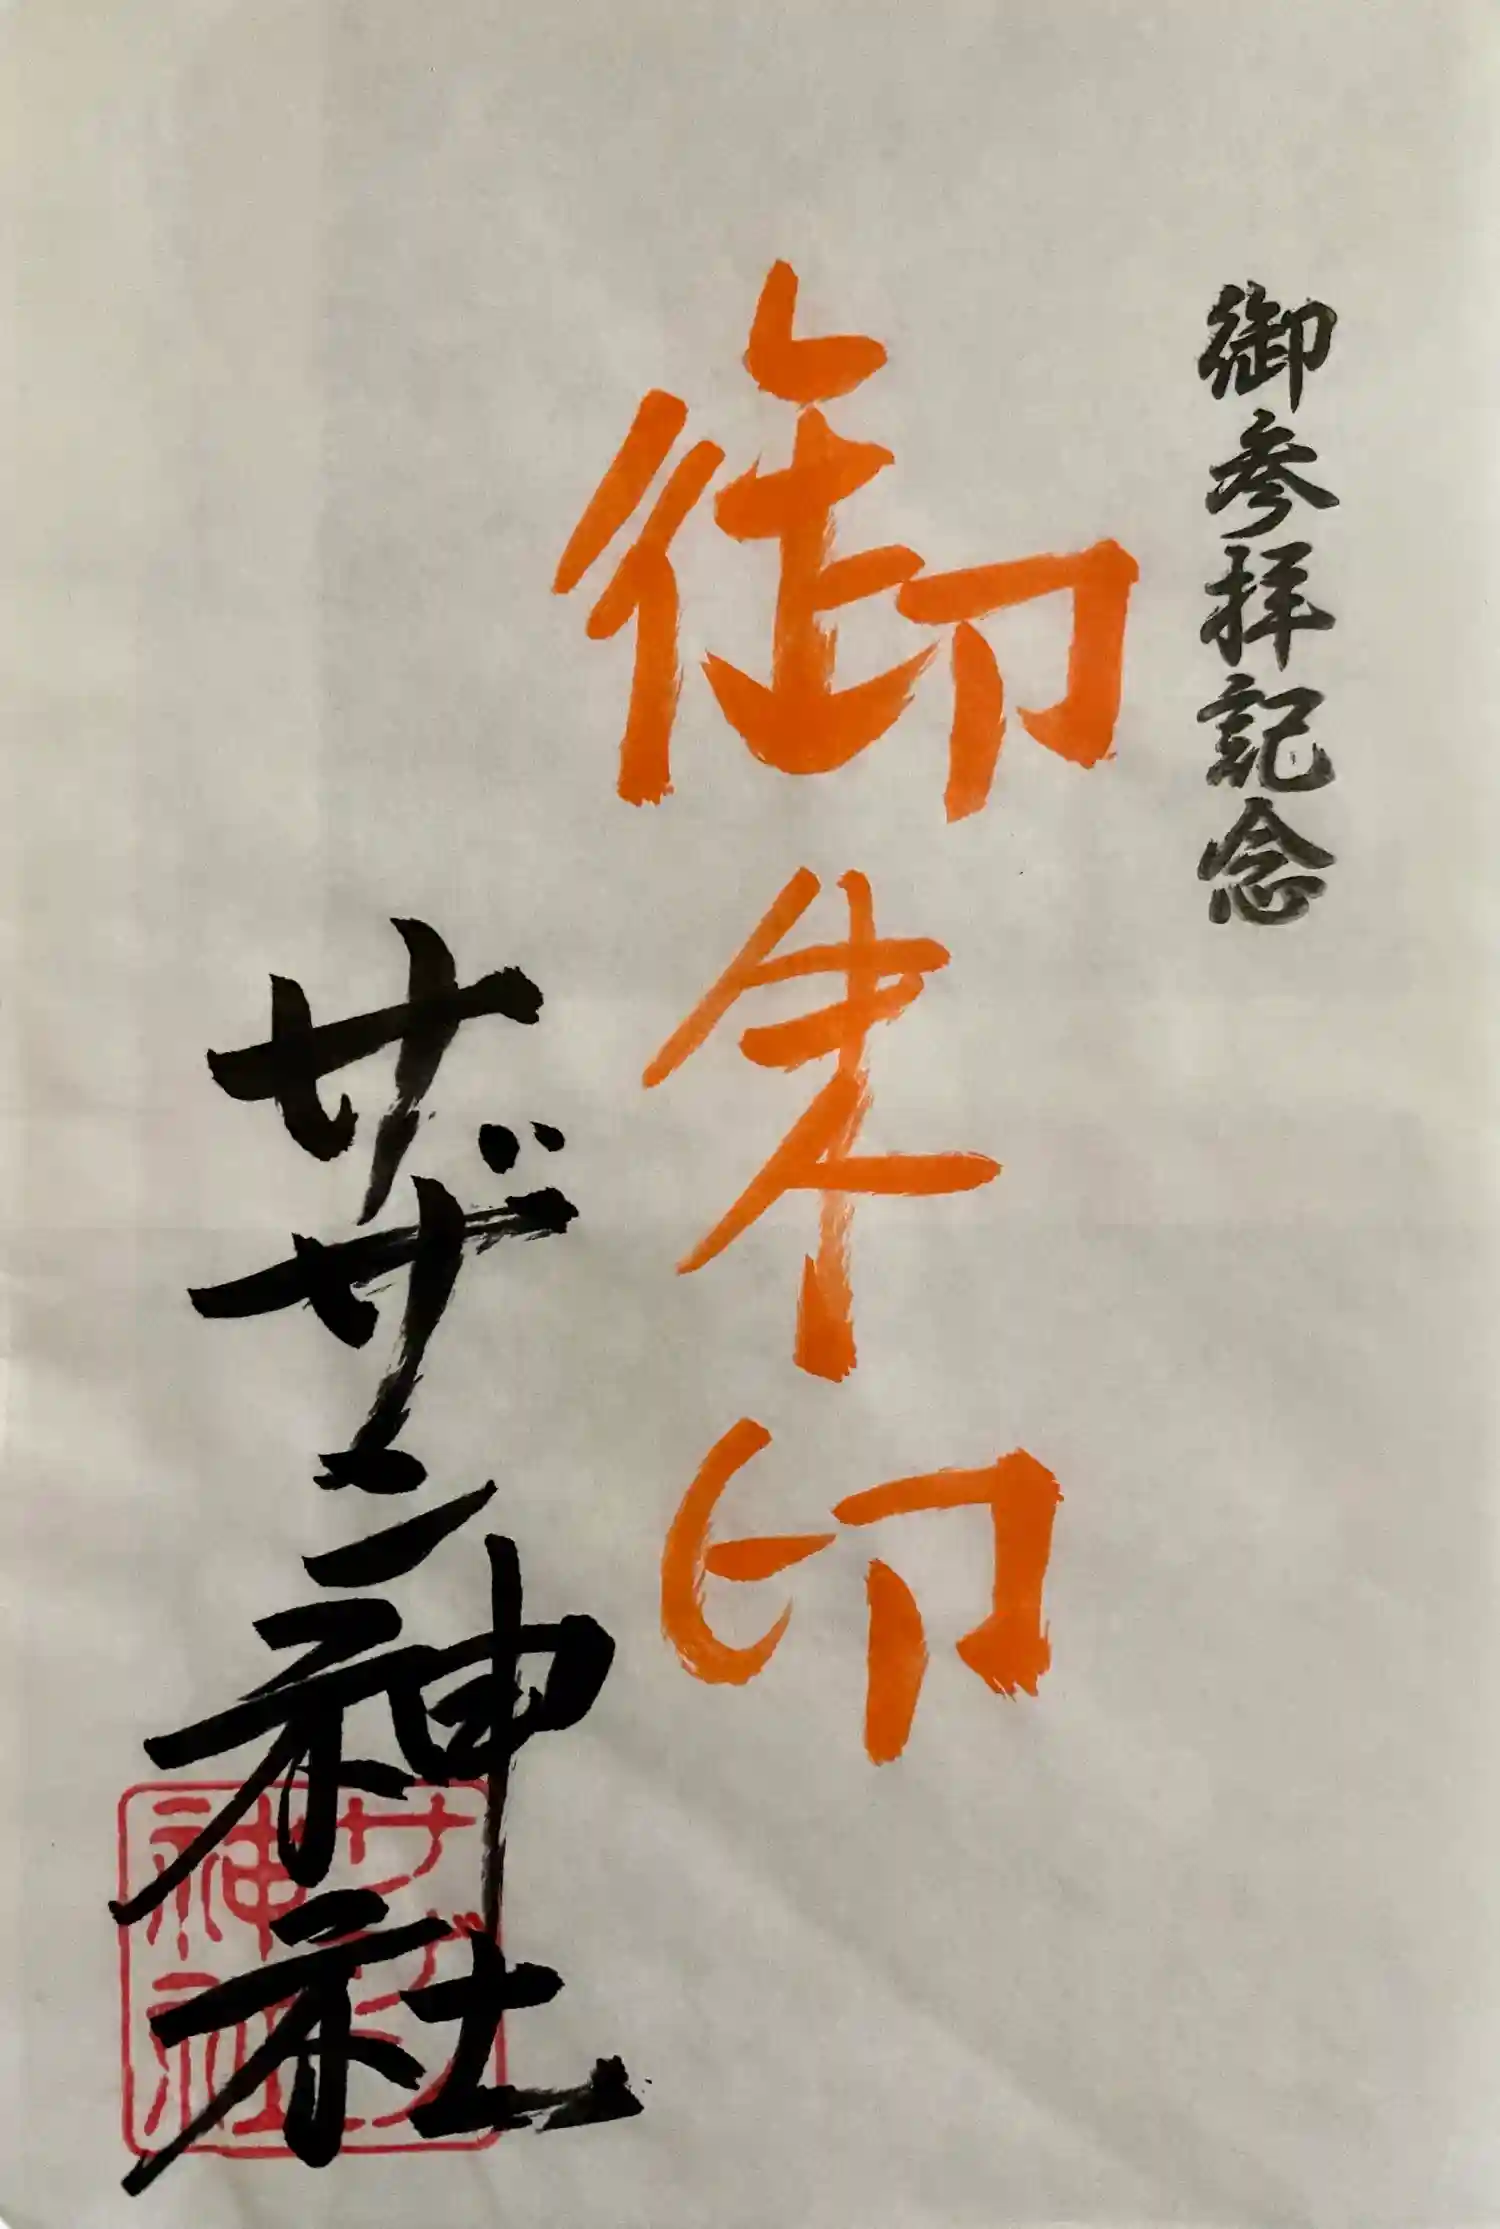 御参拝記念
御朱印
サザン神社
サザン
神社